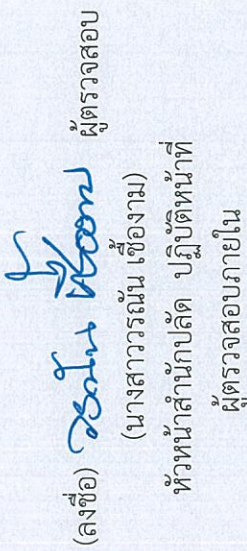 (ลงชื่อ) วรณัน เชื้องาม ผู้ตรวจสอบ
(นางสาววรณัน เชื้องาม)
หัวหน้าสำนักปลัด ปฏิบัติหน้าที่
ผู้ตรวจสอบภายใน